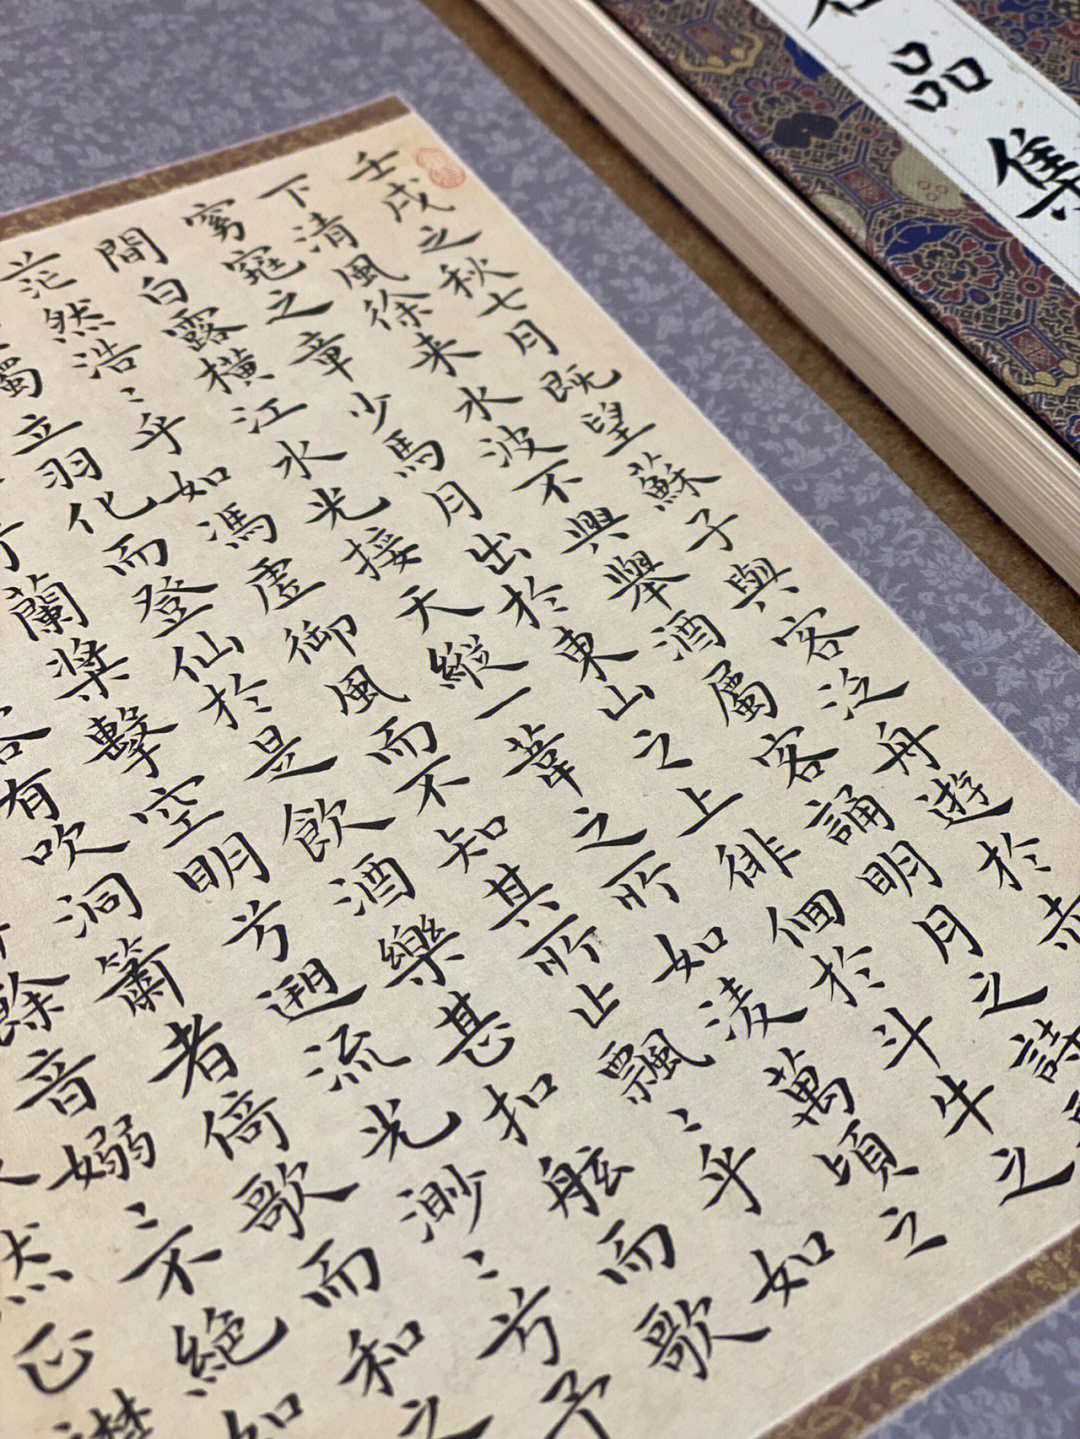 壬戌之秋七月既望蘇子與客泛舟遊於赤
下清風徐来水波不興舉酒屬客誦明月之詩
窈窕之章少焉月出於東山之上徘徊於斗牛之
間白露橫江水光接天縱一葦之所如淩萬頃之
茫然浩〻乎如馮虛御風而不知其所止飄〻乎如
獨立羽化而登仙於是飲酒樂甚扣舷而歌
兮蘭槳擊空明兮遡流光渺〻兮予
客有吹洞簫者倚歌而和之
餘音嫋〻不絕如
然正襟
品集